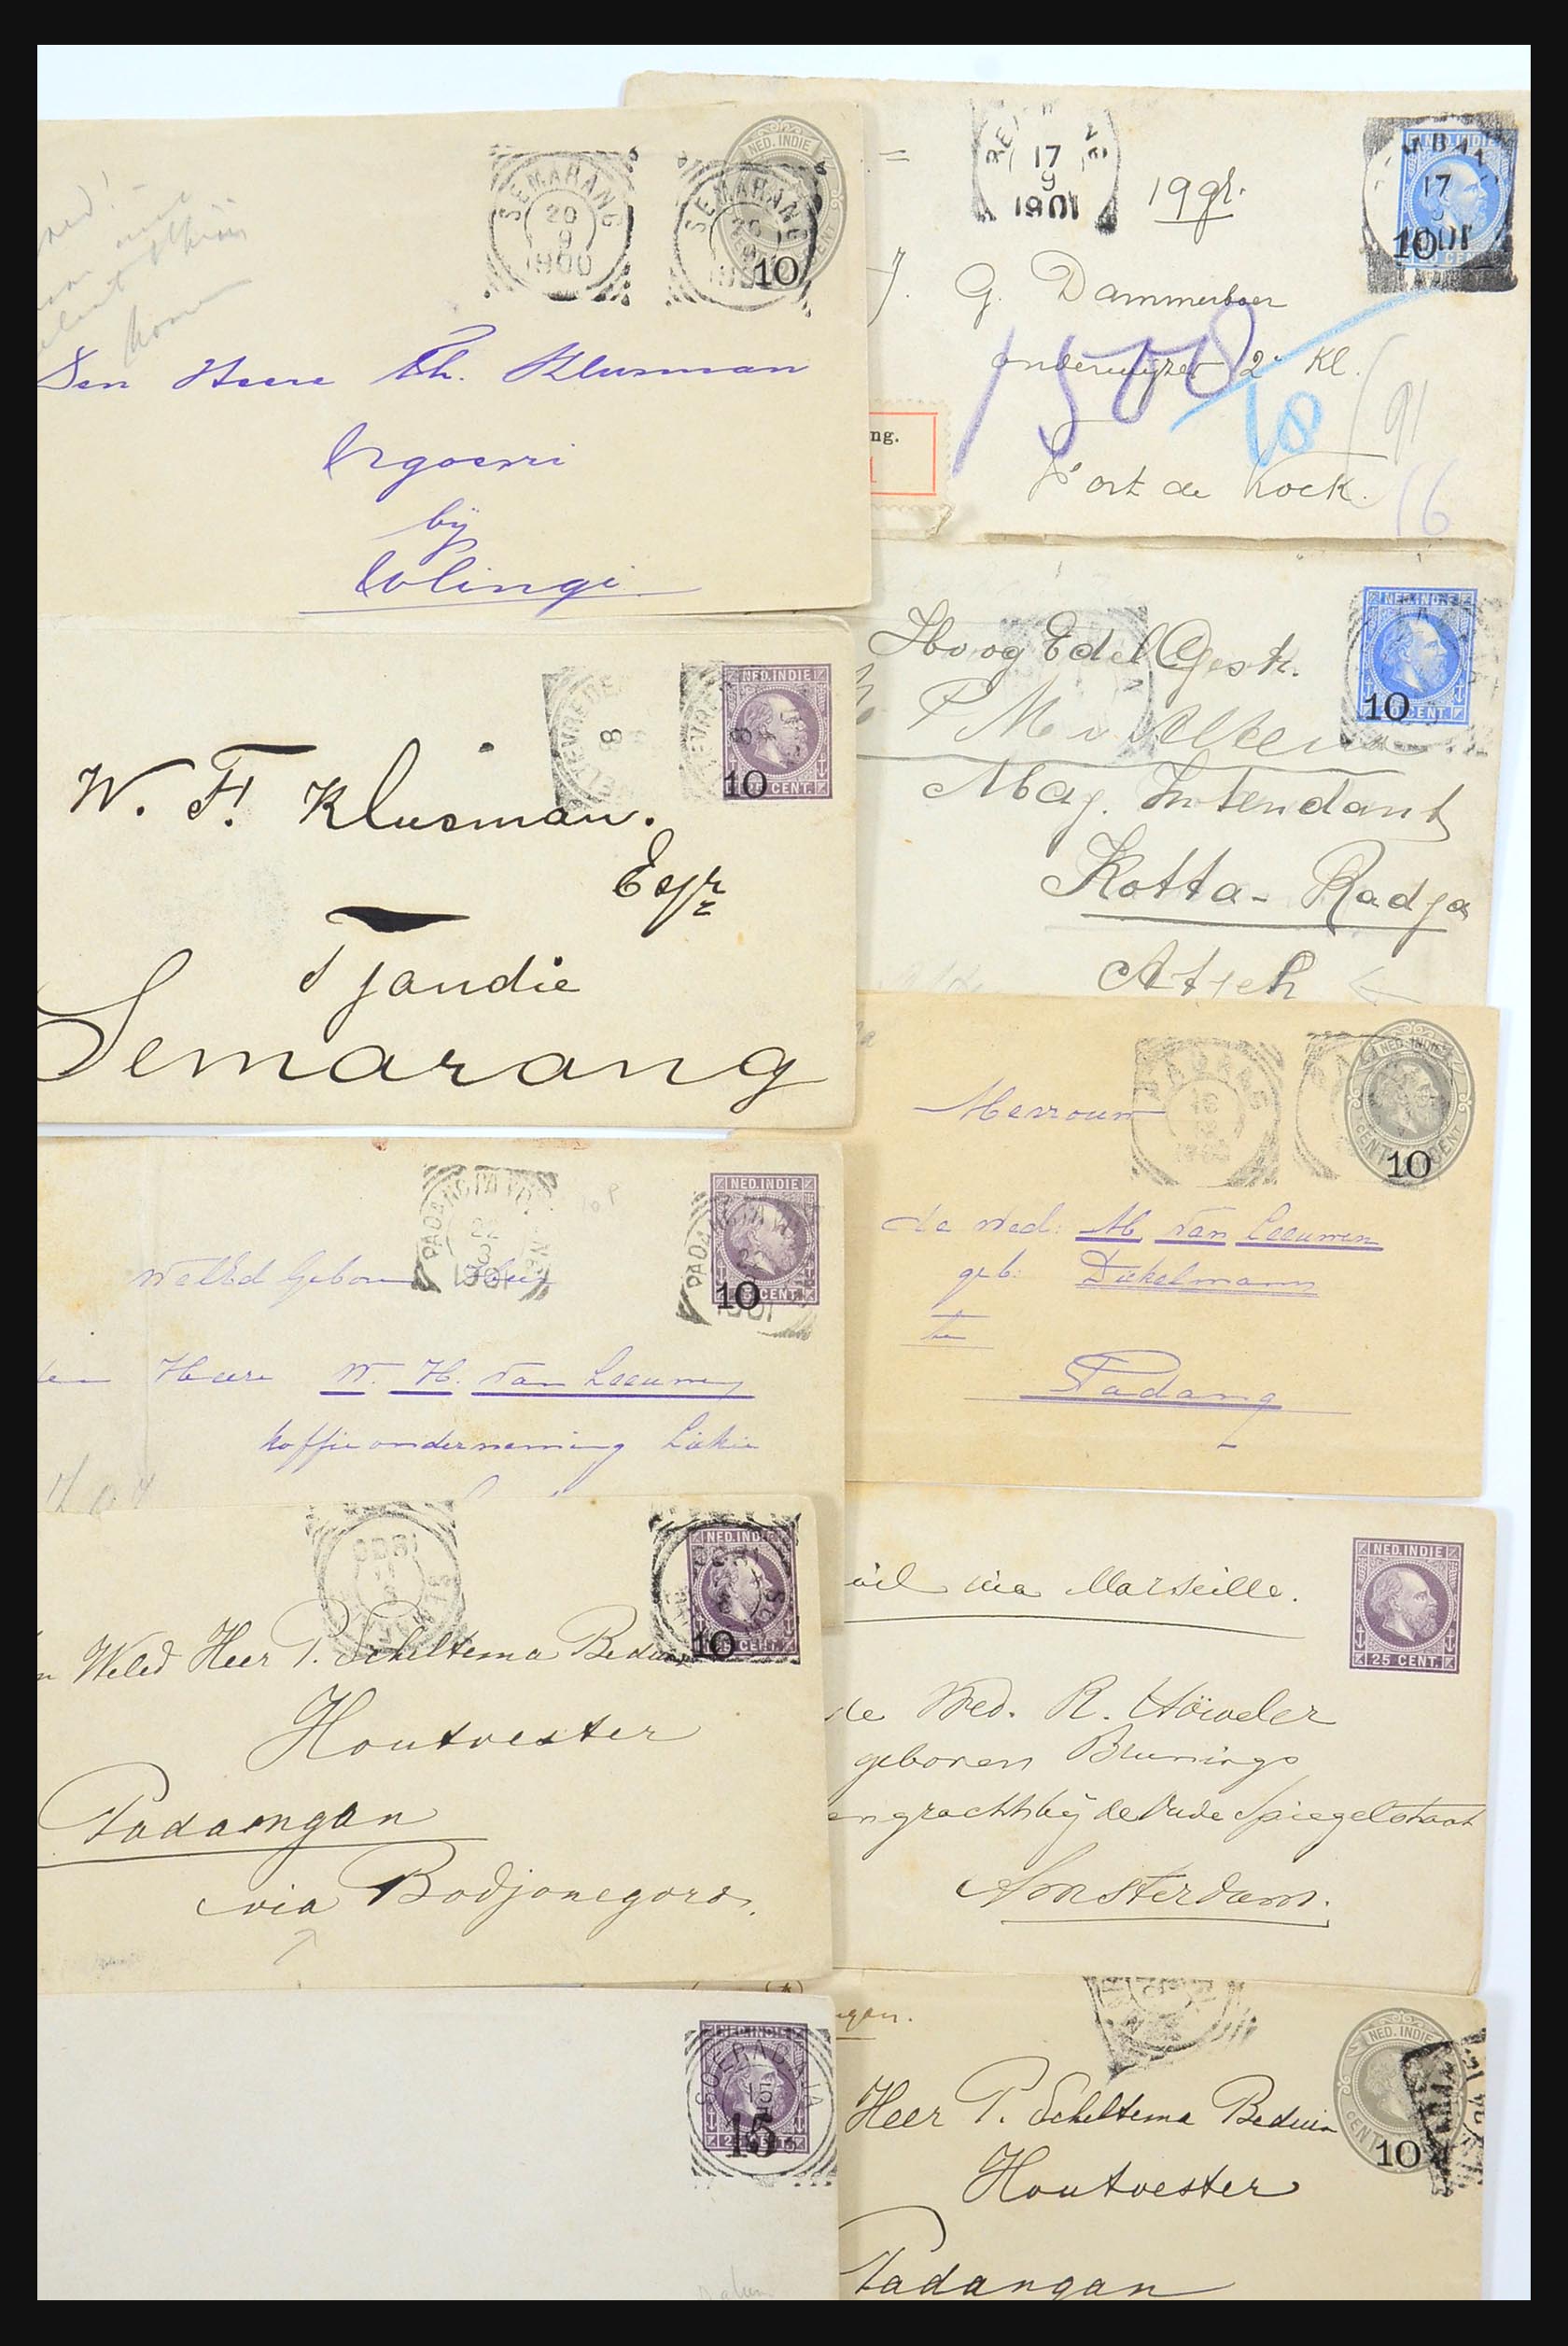 SEMARANG
20
9
1900
SEMARANG
NED. INDIE
10
Den Heere Th. Klusman
Ngoesri
bij
Wlingi
17
9
1901
19 gr.
17
1901
10
G. Dammerboer
onderwijzer 2e Kl.
1508
18
91
ng.
Fort de Kock.
16
NED. INDIE
10 CENT.
8
NED. INDIE
10 CENT.
W. F. Klusman.
Esqr
Tjandie
Semarang
Hoog Edel Gestr.
NED. INDIE
10 CENT.
P M
Maj. Intendant
Kotta-Radja
Atjeh
PADANG
NED. INDIE
CENT
10
Mevrouw
de Wed: M. van Leeuwen
geb: Dickelmann
te
Padang
22
3
1901
NED. INDIE
10 CENT.
1901
WelEd Geboren Heer
den Heere W. H. van Leeuwen
koffieonderneming Liekie
NED. IND
10 CENT.
n WelEd Heer P. Scheltema Beduin
Houtvester
Padangan
via Bodjonegoro.
via Marseille.
NED. INDIE
25 CENT.
de Wed. R. Höweler
geboren Brunings
engracht bij de Oude Spiegelstraat
Amsterdam.
NED. INDIE
SOERABAJA
15
15
ngan.
NED. INDIE
CENT
10
Heer P. Scheltema Beduin
Houtvester
Padangan